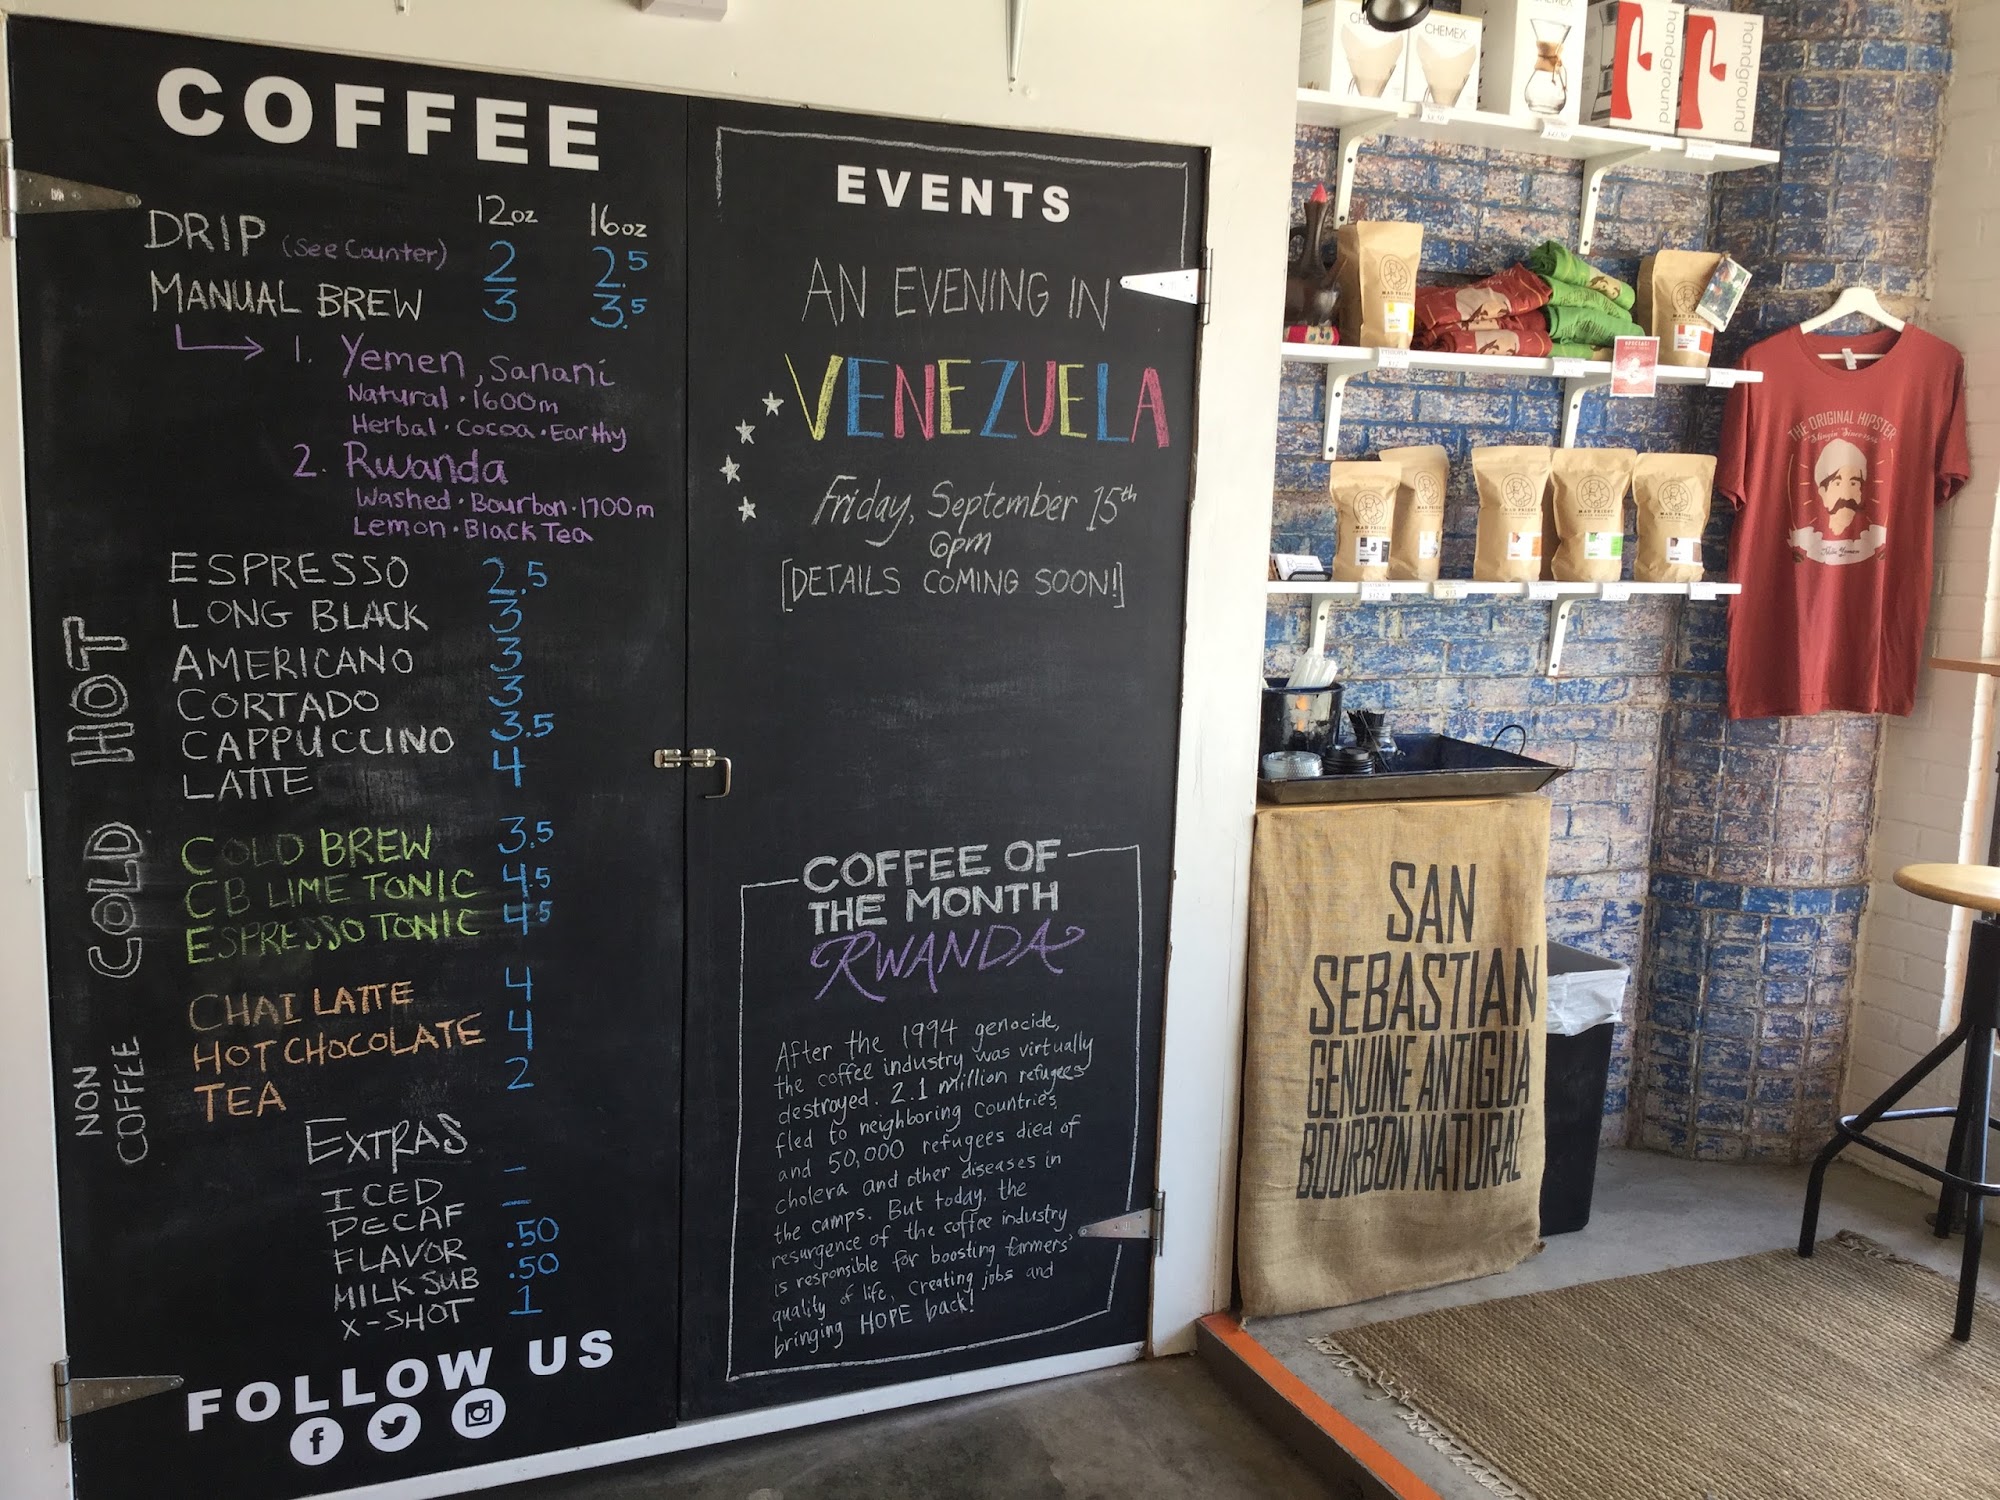 COFFEE
12oz 16oz
DRIP (See Counter) 2 2.5
MANUAL BREW 3 3.5
1. Yemen, Sanani
Natural · 1600m
Herbal · Cocoa · Earthy
2. Rwanda
Washed · Bourbon · 1700m
Lemon · Black Tea
HOT
ESPRESSO 2.5
LONG BLACK 3
AMERICANO 3
CORTADO 3
CAPPUCCINO 3.5
LATTE 4
COLD
COLD BREW 3.5
CB LIME TONIC 4.5
ESPRESSO TONIC 4.5
NON
COFFEE
CHAI LATTE 4
HOT CHOCOLATE 4
TEA 2
EXTRAS
ICED –
DECAF –
FLAVOR .50
MILK SUB .50
X-SHOT 1
FOLLOW US
EVENTS
AN EVENING IN
VENEZUELA
Friday, September 15th
6pm
[DETAILS COMING SOON!]
COFFEE OF
THE MONTH
RWANDA
After the 1994 genocide,
the coffee industry was virtually
destroyed. 2.1 million refugees
fled to neighboring countries,
and 50,000 refugees died of
cholera and other diseases in
the camps. But today, the
resurgence of the coffee industry
is responsible for boosting farmers'
quality of life, creating jobs and
bringing HOPE back!
CHEMEX
CHEMEX
handground
handground
MAD PRIEST
MAD PRIEST
SPECIAL!
MAD PRIEST
MAD PRIEST
MAD PRIEST
MAD PRIEST
THE ORIGINAL HIPSTER
SAN
SEBASTIAN
GENUINE ANTIGUA
BOURBON NATURAL